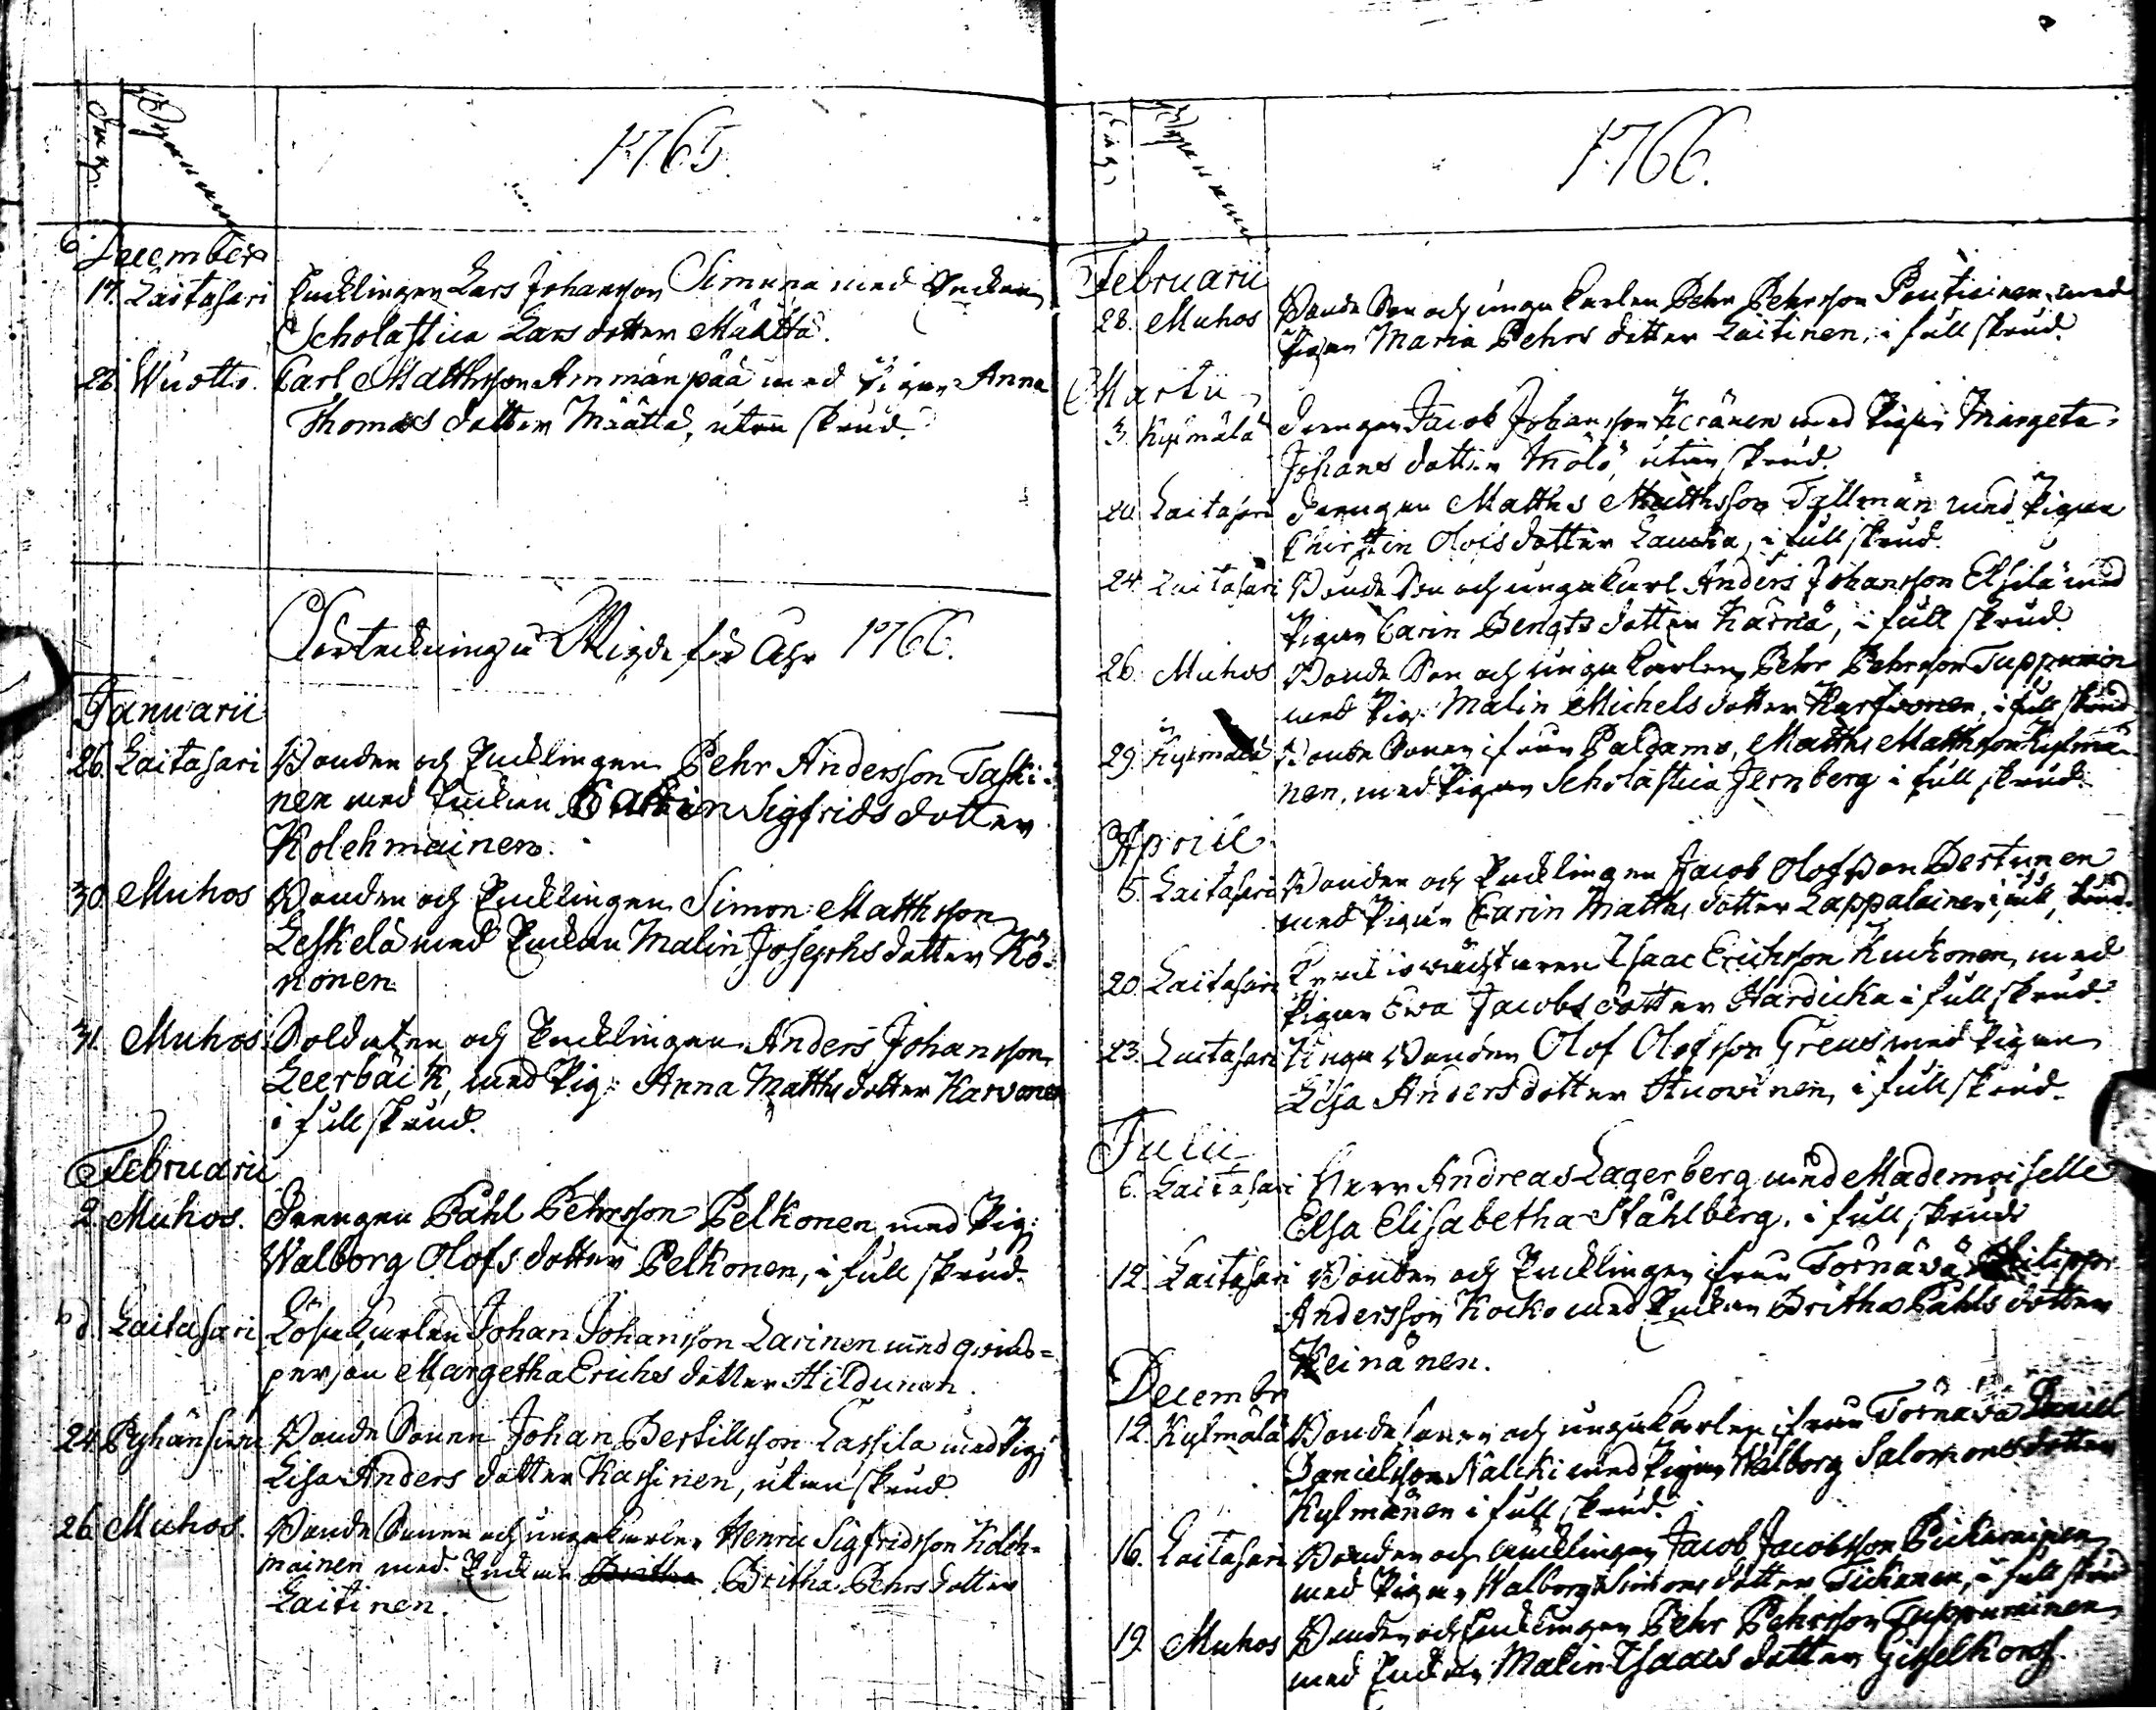 Dag.
Byanamn
1765.
December
17. Laitasari Encklingen Lars Johansson Simuna med Enckan
Scholastica Larsdotter Määttä.
28. Wuotto. Carl Matthsson Ammänpää med Pigan Anna
Thomasdotter Määttä, utan skrud.
Förteckning å Wigde för Åhr 1766.
Januarii
26 Laitasari Bonden och Encklingen Pehr Andersson Taski-
nen med Enckan Catarin Sigfridsdotter
Kolehmainen.
30 Muhos Bonden och Encklingen Simon Matthsson
Leskelä med Enckan Malin Josephsdotter Kö-
nönen
31. Muhos Soldaten och Encklingen Anders Johansson
Leerbäck, med Pig: Anna Matthsdotter Karvonen
i full skrud.
Februarii
2. Muhos. Drengen Påhl Pehrsson Pelkonen med Pig:
Walborg Olofsdotter Pelkonen, i full skrud.
d. Laitasari Lösa Karlen Johan Johansson Larinen med qwins-
person Margetha Erichsdotter Hildunen.
24. Pyhänsivu Bonde Sonen Johan Bertillsson Lassila med Pig:
Lisa Andersdotter Kassinen, utan skrud
26. Muhos. Bonde Sonen och unga karlen Henric Sigfridsson Koleh-
mainen med Enckan Britha Britha Pehrsdotter
Laitinen.
Dag
Byanamn
1766.
Februarii
28. Muhos Bonde Son och unga karlen Pehr Pehrsson Poutiainen med
Pigan Maria Pehrsdotter Laitinen, i full skrud.
Martii
3. Kylmälä Drengen Jacob Johansson Keränen med Pigan Margeta
Johansdotter Mölö utan skrud.
20. Laitasari Drengen Matths Matthsson Tallman med Pigan
Chirstin Olofsdotter Laucka, i full skrud.
24. Laitasari Bonde Son och unga karl Anders Johansson Elsilä med
Pigan Carin Bengtsdotter Kärnä, i full skrud.
26. Muhos Bonde Son och unga karlen Pehr Pehrsson Tuppurain
med Pig: Malin Michelsdotter Karfwonen, i full skrud
29. Kylmälä Bonde Sonen ifrån Paldamo, Matths Matthsson Kylmä-
nen, med Pigan Scholastica Jernberg i full skrud.
Aprill
5. Laitasari Bonden och Encklingen Jacob Olofsson Bertunen
med Pigan Carin Matthsdotter Lappalainen i full skrud.
20. Laitasari Isaac Erichsson Kuckonen, med
Pigan Ewa Jacobsdotter Hardicka i full skrud.
23. Laitasari Unga Bonden Olof Olofsson Greus med Pigan
Lisa Andersdotter Huovinen, i full skrud.
Julii
6. Laitasari Herr Andreas Lagerberg med Mademoiselle
Elsa Elisabetha Stahlberg, i full skrud
12. Laitasari Bonden och Encklingen ifrån Törnävä Philippus
Andersson Kocko med Enckan Britha Påhlsdotter
Keinänen.
Decembr
12. Kylmälä Bonde sonen och unga karlen ifrån Törnävä Daniel
Danielsson Nälcki med Pigan Walborg Salomonsdotter
Kylmänen i full skrud.
16. Laitasari Bonden och Encklingen Jacob Jacobsson Pickarainen
med Pigan Walborg Simonsdotter Tickanen, i full skrud
19 Muhos Bonden och Encklingen Pehr Pehrsson Tuppurainen
med Enckan Malin Isaacsdotter Gisselkors.